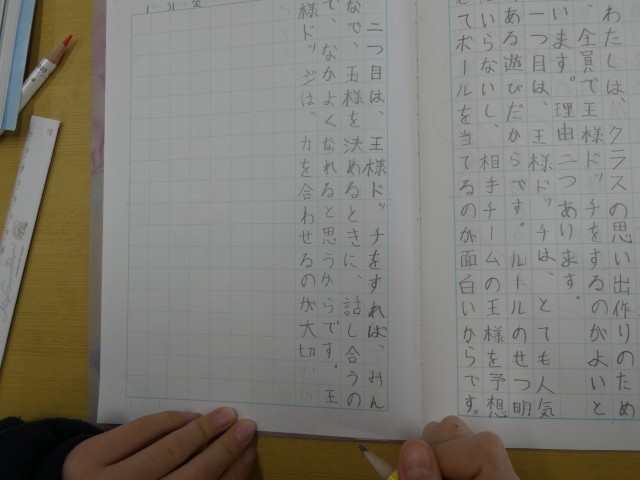 わたしは、クラスの思い出作りのため
、全員で王様ドッチをするのがよいと
います。理由二つあります。
一つ目は、王様ドッチは、とても人気
ある遊びだからです。ルールのせつ明
いらないし、相手チームの王様を予想
てボールを当てるのが面白いからです。
二つ目は、王様ドッチをすれば、みん
なで、王様を決めるときに、話し合うの
で、なかよくなれると思うからです。王
様ドッジは、力を合わせるのが大切